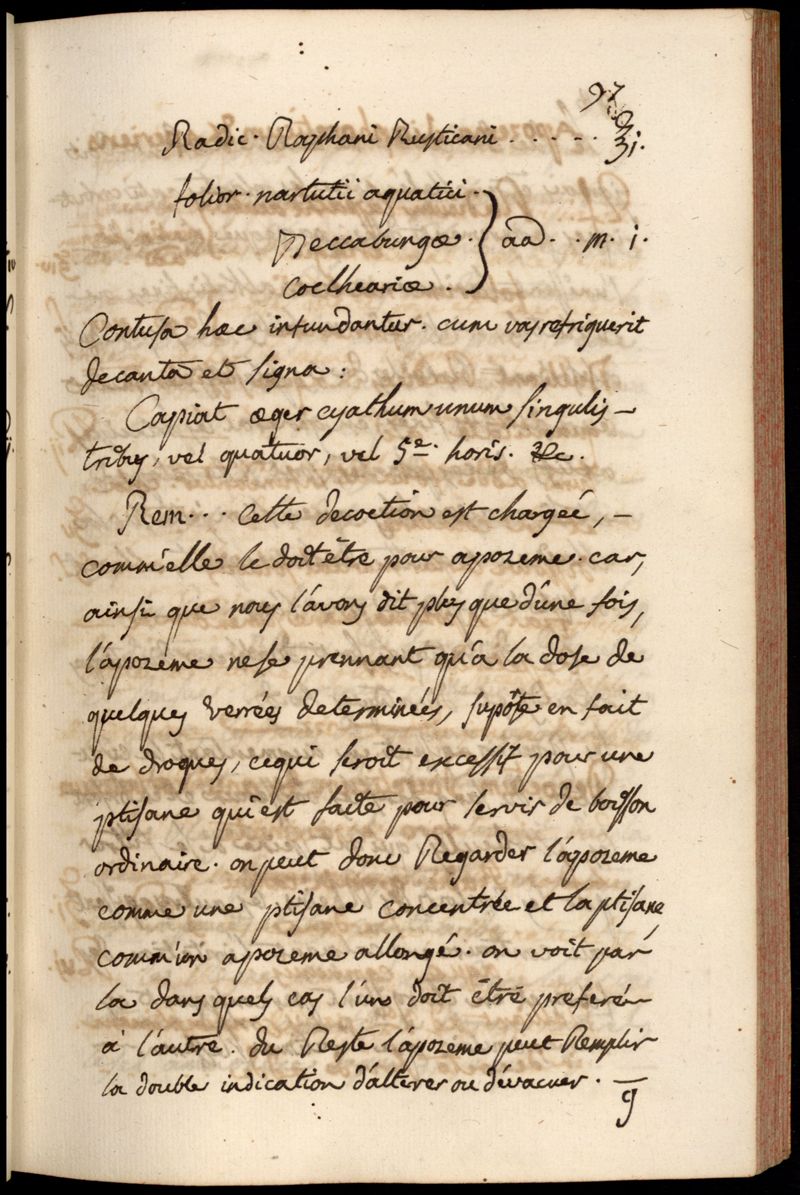 97
Radic. Raphani Rusticani . . . . . ℥j.
folior. nasturtii aquatici.
Beccabungæ. } aa. . m. j.
Coclheariæ.
Contusa hæc infundantur. cum vas refriguerit
decanta et signa:
Capiat æger cyathum unum singulis –
tribus, vel quatuor, vel 5e. horis. &c.
Rem... cette decoction est chargeé, –
comm'elle le doit être pour apozeme. car,
ainsi que nous l'avons dit plus que d'une fois,
l'apozeme ne se prennant qu'a la dose de
quelques verrées determinées, supôse en fait
de drogues, ce qui seroit excessif pour une
ptisane qui est faite pour servir de boisson
ordinaire. on peut donc Regarder l'apozeme
comme une ptisane concentrée et la ptisane
comm'un apozeme allongé. on voit par
la dans quels cas l'un doit être preferé
à l'autre. du Reste l'apozeme peut Remplir
la double indication d'alterer ou d'évacuer. –
g